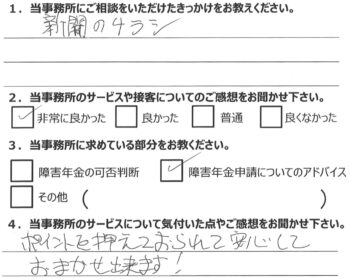 1．当事務所にご相談をいただけたきっかけをお教えください。
新聞のチラシ
2．当事務所のサービスや接客についてのご感想をお聞かせ下さい。
非常に良かった 良かった 普通 良くなかった
3．当事務所に求めている部分をお教えください。
障害年金の可否判断 障害年金申請についてのアドバイス
その他 ( )
4．当事務所のサービスについて気付いた点やご感想をお聞かせ下さい。
ポイントを押えておられて安心して
おまかせ出来ます!